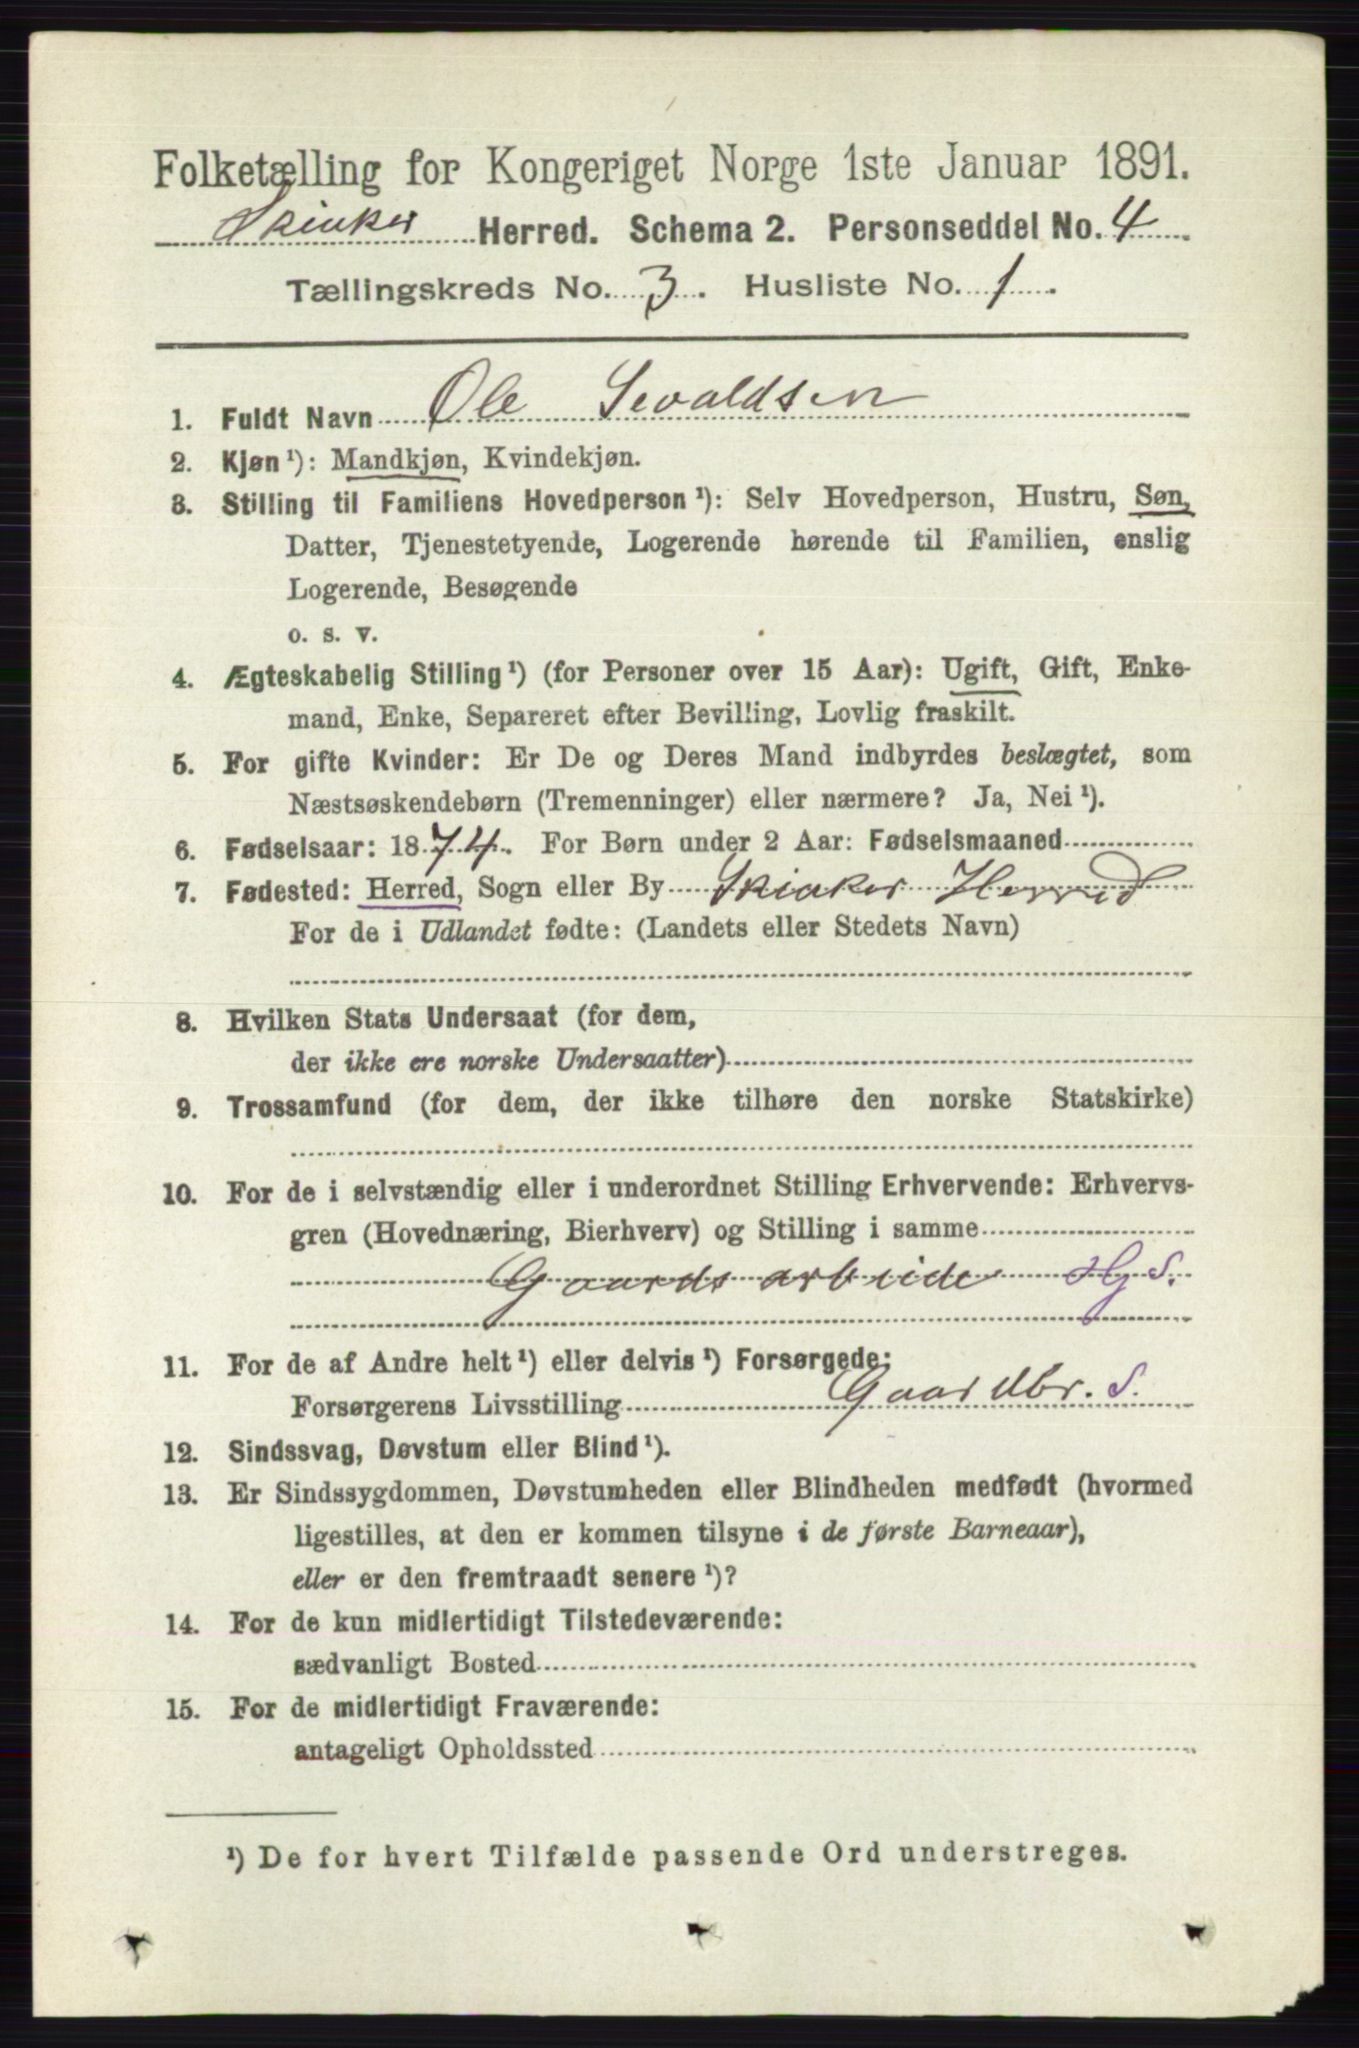 Folketælling for Kongeriget Norge 1ste Januar 1891.
Skiaker Herred. Schema 2. Personseddel No. 4
Tællingskreds No. 3. Husliste No. 1.
1. Fuldt Navn Ole Sevaldsen
2. Kjøn¹): Mandkjøn, Kvindekjøn.
3. Stilling til Familiens Hovedperson¹): Selv Hovedperson, Hustru, Søn,
Datter, Tjenestetyende, Logerende hørende til Familien, enslig
Logerende, Besøgende
o. s. v.
4. Ægteskabelig Stilling¹) (for Personer over 15 Aar): Ugift, Gift, Enke-
mand, Enke, Separeret efter Bevilling, Lovlig fraskilt.
5. For gifte Kvinder: Er De og Deres Mand indbyrdes beslægtet, som
Næstsøskendebørn (Tremenninger) eller nærmere? Ja, Nei¹).
6. Fødselsaar: 1874. For Børn under 2 Aar: Fødselsmaaned
7. Fødested: Herred, Sogn eller By Skiaker Herred
For de i Udlandet fødte: (Landets eller Stedets Navn)
8. Hvilken Stats Undersaat (for dem,
der ikke ere norske Undersaatter)
9. Trossamfund (for dem, der ikke tilhøre den norske Statskirke)
10. For de i selvstændig eller i underordnet Stilling Erhvervende: Erhvervs-
gren (Hovednæring, Bierhverv) og Stilling i samme
Gaardsarbeide Hg S.
11. For de af Andre helt¹) eller delvis¹) Forsørgede:
Forsørgerens Livsstilling Gaardbr. S.
12. Sindssvag, Døvstum eller Blind¹).
13. Er Sindssygdommen, Døvstumheden eller Blindheden medfødt (hvormed
ligestilles, at den er kommen tilsyne i de første Barneaar),
eller er den fremtraadt senere¹)?
14. For de kun midlertidigt Tilstedeværende:
sædvanligt Bosted
15. For de midlertidigt Fraværende:
antageligt Opholdssted
¹) De for hvert Tilfælde passende Ord understreges.